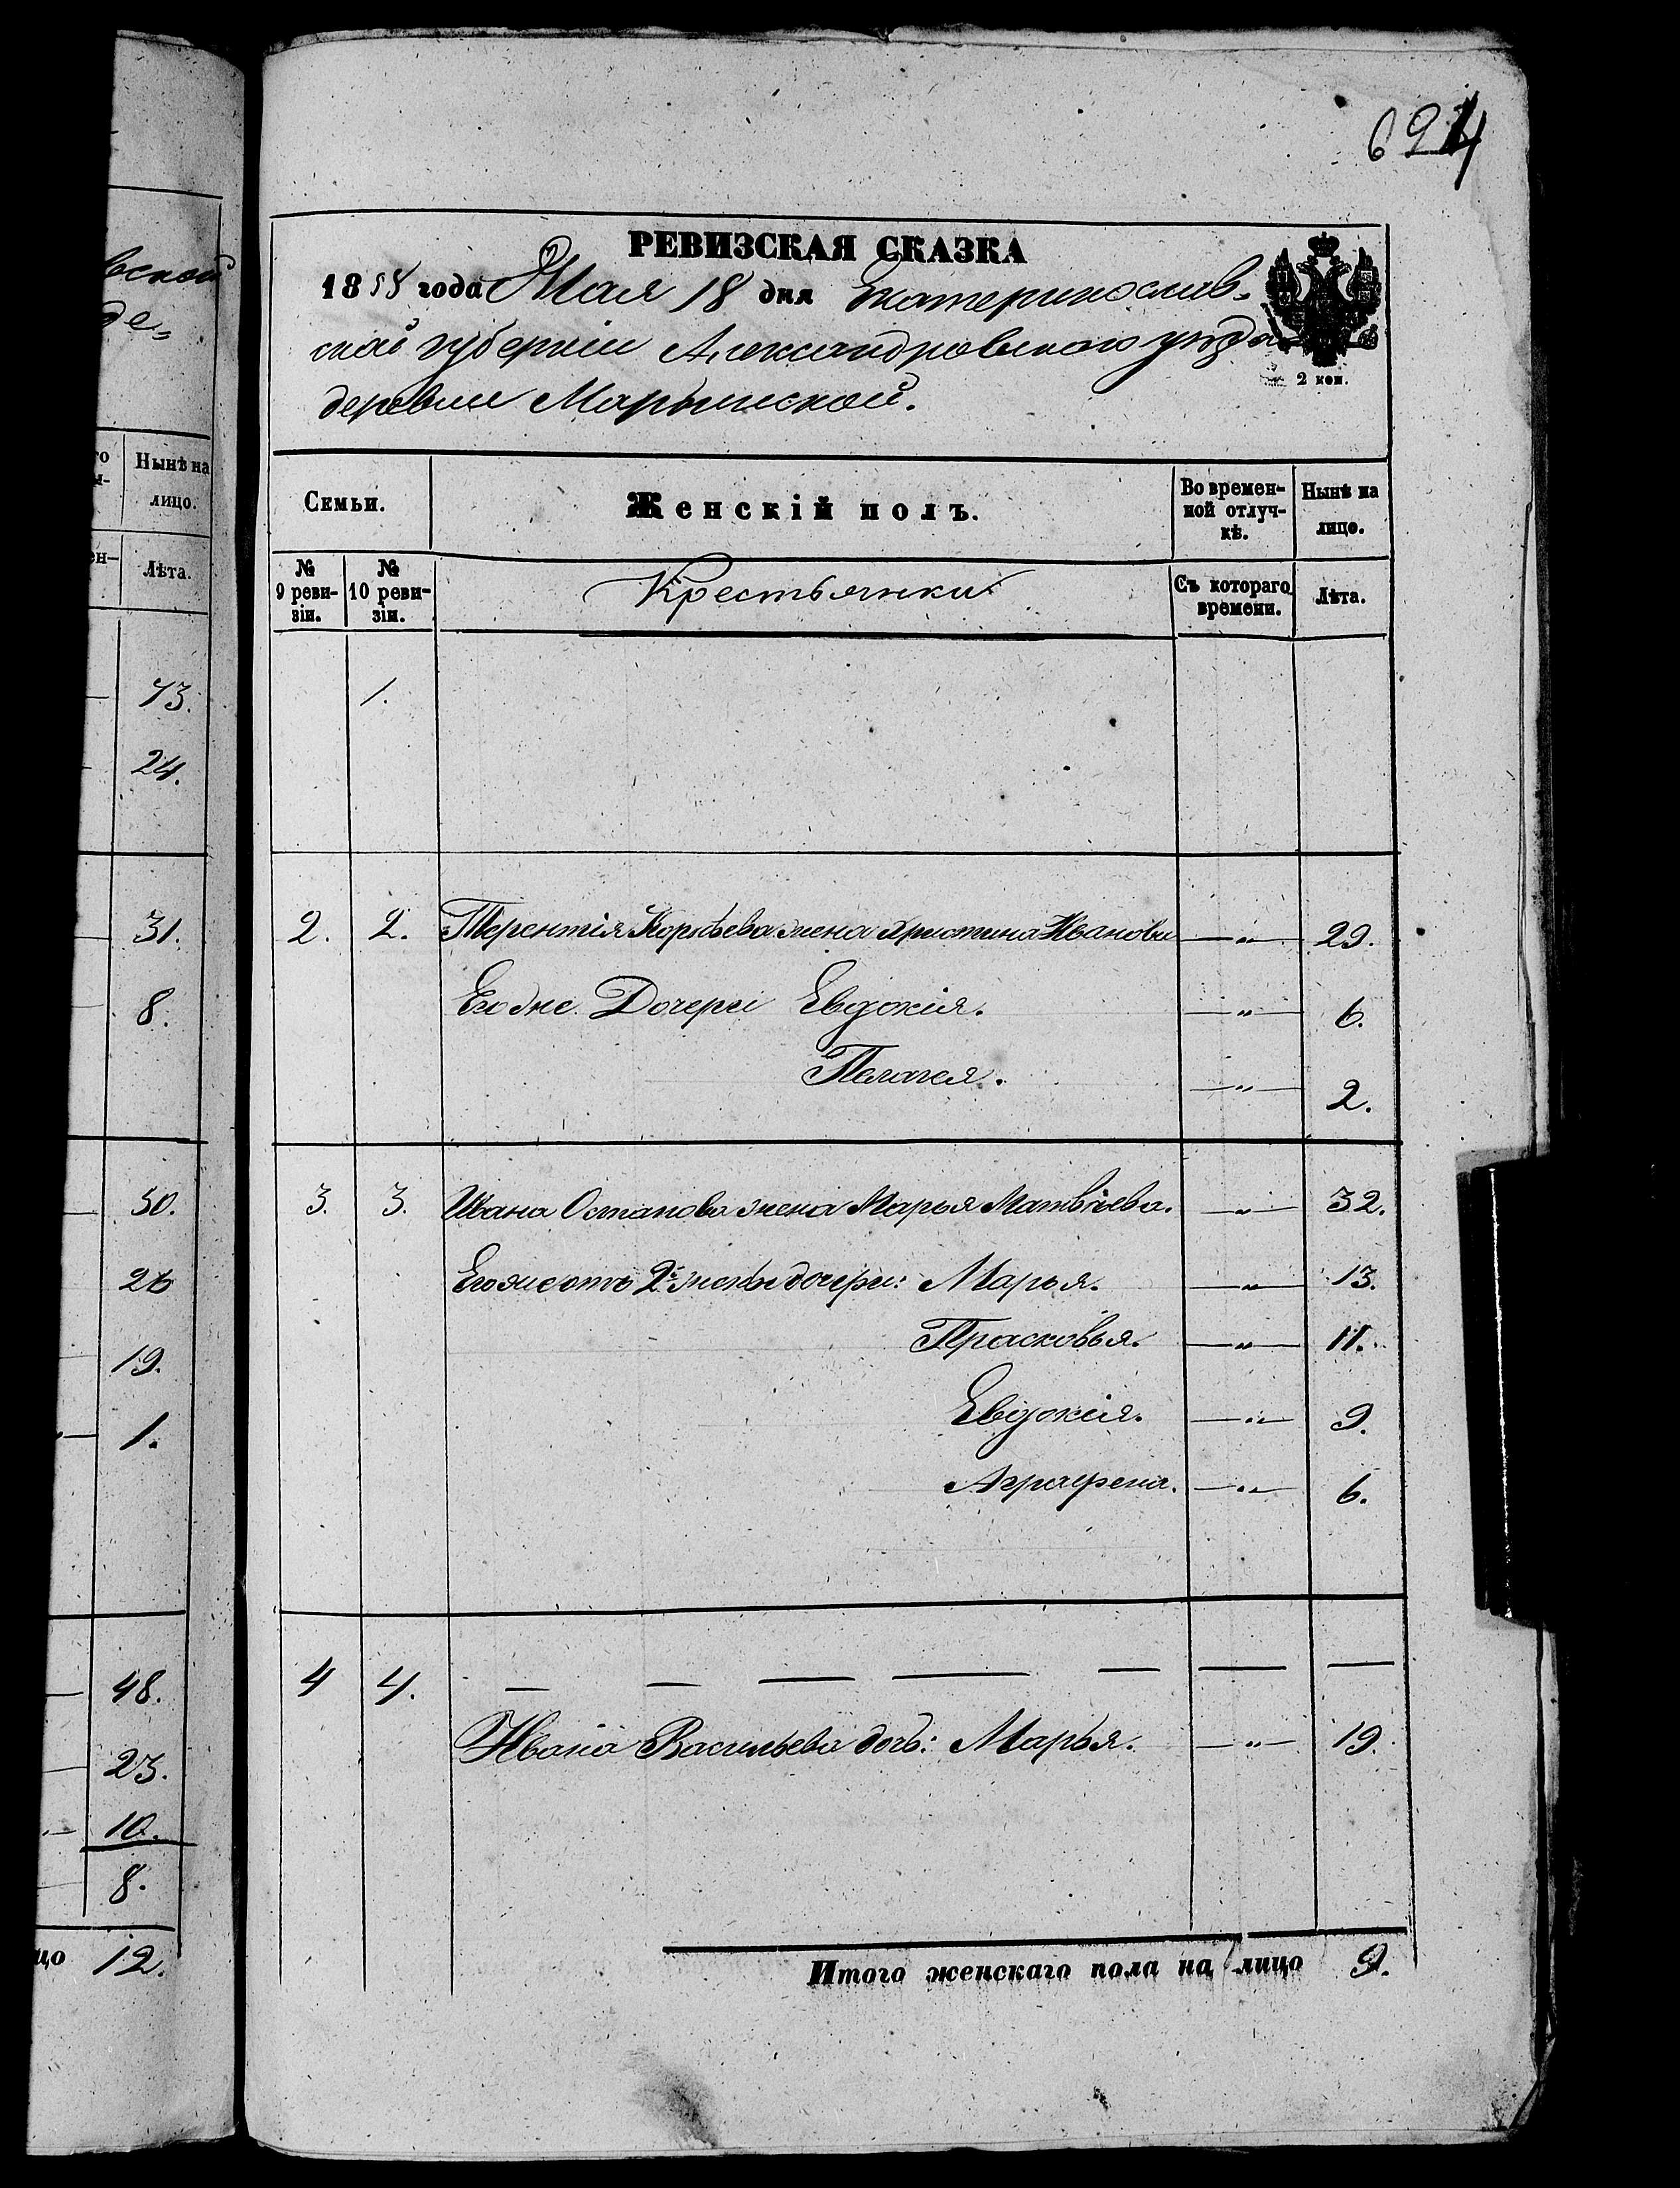 вской
де-
го
Нынѣ на
лицо.
Лѣта.
73.
24.
31.
8.
50.
26
19.
1.
48.
23.
10.
8.
12.
РЕВИЗСКАЯ СКАЗКА
1858 года Мая 18 дня Екатеринослав-
ской губерніи Александровскаго уѣзда
2 коп.
деревни Марьинской.
Семьи. Женскій полъ. Во времен-ной отлуч-кѣ. Нынѣ на лице.
№ 9 реви-зіи. № 10 реви-зіи. Крестьянки Съ котораго времени. Лѣта.
1.
2. 2. Терентія жена Христина Иванова — „ — 29.
Его же Дочери Евдокія. — „ — 6.
Пелагея. — „ — 2.
3. 3. Ивана Остапова жена Марья Матвѣева. — „ — 32.
Его же отъ 2й жены дочери: Марья. — „ — 13.
Прасковья. — „ — 11.
Евдокія. — „ — 9.
Аграфена. — „ — 6.
4 4. — — — — — — —
Ивана Васильева дочь: Марья. — „ — 19.
Итого женскаго пола на лицо 9.